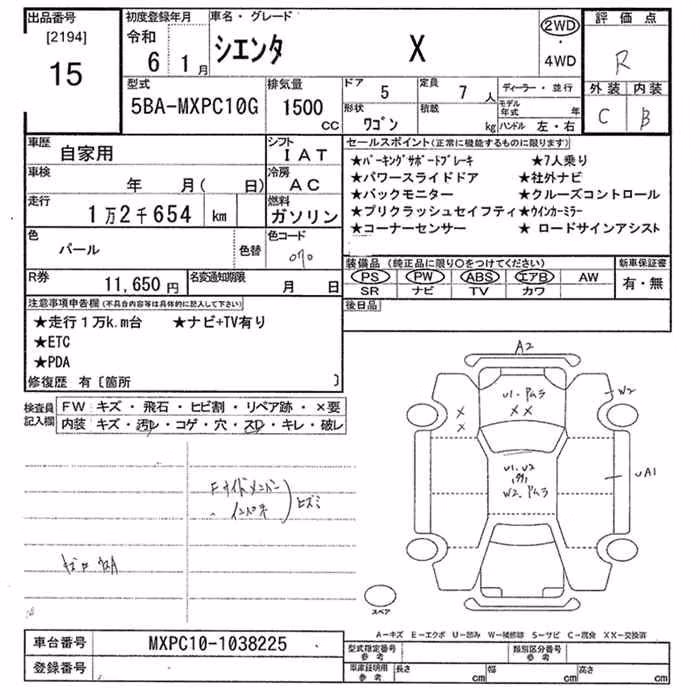 出品番号
[2194]
15
初度登録年月
令和
6 1月
車名・グレード
シエンタ X
2WD
・
4WD
評価点
R
外装 内装
C B
型式
5BA-MXPC10G
排気量
1500
CC
ドア 5
形状
ワゴン
定員 7 人
積載 kg
ディーラー・並行
モデル年式 年
ハンドル 左・右
車歴
自家用
シフト
IAT
車検
年 月( 日)
冷房
AC
走行
1万2千654 km
燃料
ガソリン
色
パール
色替
色コード
070
R券
11,650円
名変通知期限
月 日
セールスポイント(正常に機能するものに限ります)
★パーキングサポートブレーキ ★7人乗り
★パワースライドドア ★社外ナビ
★バックモニター ★クルーズコントロール
★プリクラッシュセイフティ ★ウインカーミラー
★コーナーセンサー ★ロードサインアシスト
装備品(純正品に限り○をつけてください)
新車保証書
PS PW ABS エアB AW
SR ナビ TV カワ
有・無
後日品
注意事項申告欄(不具合内容等は具体的に記入して下さい)
★走行1万k.m台 ★ナビ+TV有り
★ETC
★PDA
修復歴 有〔箇所 〕
検査員記入欄
FW キズ・飛石・ヒビ割・リペア跡・×要
内装 キズ・汚レ・コゲ・穴・スレ・キレ・破レ
Fサイドメンバー
インパネ
ヒズミ
A2
U1・ドムラ
XX
W2
X
X
U1、U2
W2、ドムラ
UA1
スペア
A-キズ E-エクボ U-凹み W-補修跡 S-サビ C-腐食 XX-交換済
車台番号 MXPC10-1038225
登録番号
型式指定番号
参考
類別区分番号
参考
車庫証明用
参考
長さ cm 幅 cm 高さ cm